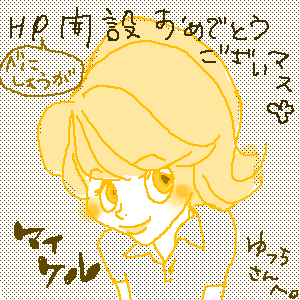 HP開設おめでとう
ございマス
べにしょうが
マイケル
ゆっちさんへ。